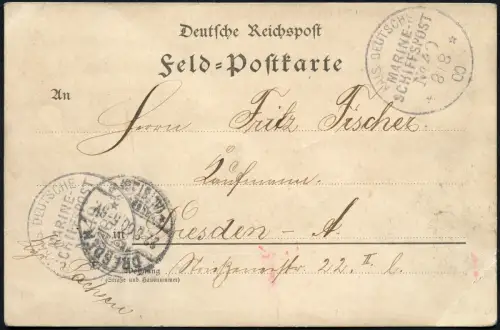 Deutsche Reichspost
Feld=Postkarte
KAIS. DEUTSCHE
MARINE-
SCHIFFSPOST
No 40
8/8
00
An
Herrn Fritz Fischer
Kaufmann
in Dresden - A.
22 II l.
Wohnung
(Straße und Hausnummer)
DEUTSCHE
MARINE-
DRESDEN
Sachsen.